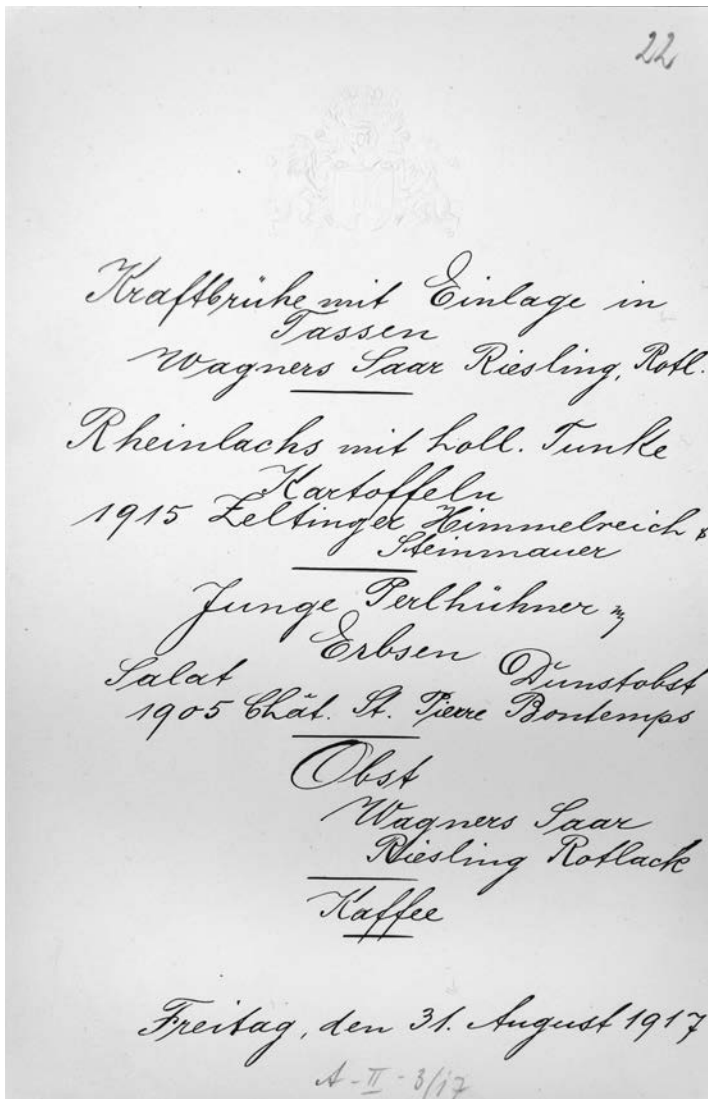 22
Kraftbrühe mit Einlage in
Tassen
Wagners Saar Riesling, Rotl.
Rheinlachs mit holl. Tunke
Kartoffeln
1915 Zeltinger Himmelreich &
Steinmauer
Junge Perlhühner
Erbsen
Salat Dunstobst
1905 Chât. St. Pierre Bontemps
Obst
Wagners Saar
Riesling Rotlack
Kaffee
Freitag, den 31. August 1917
A-II-3/17